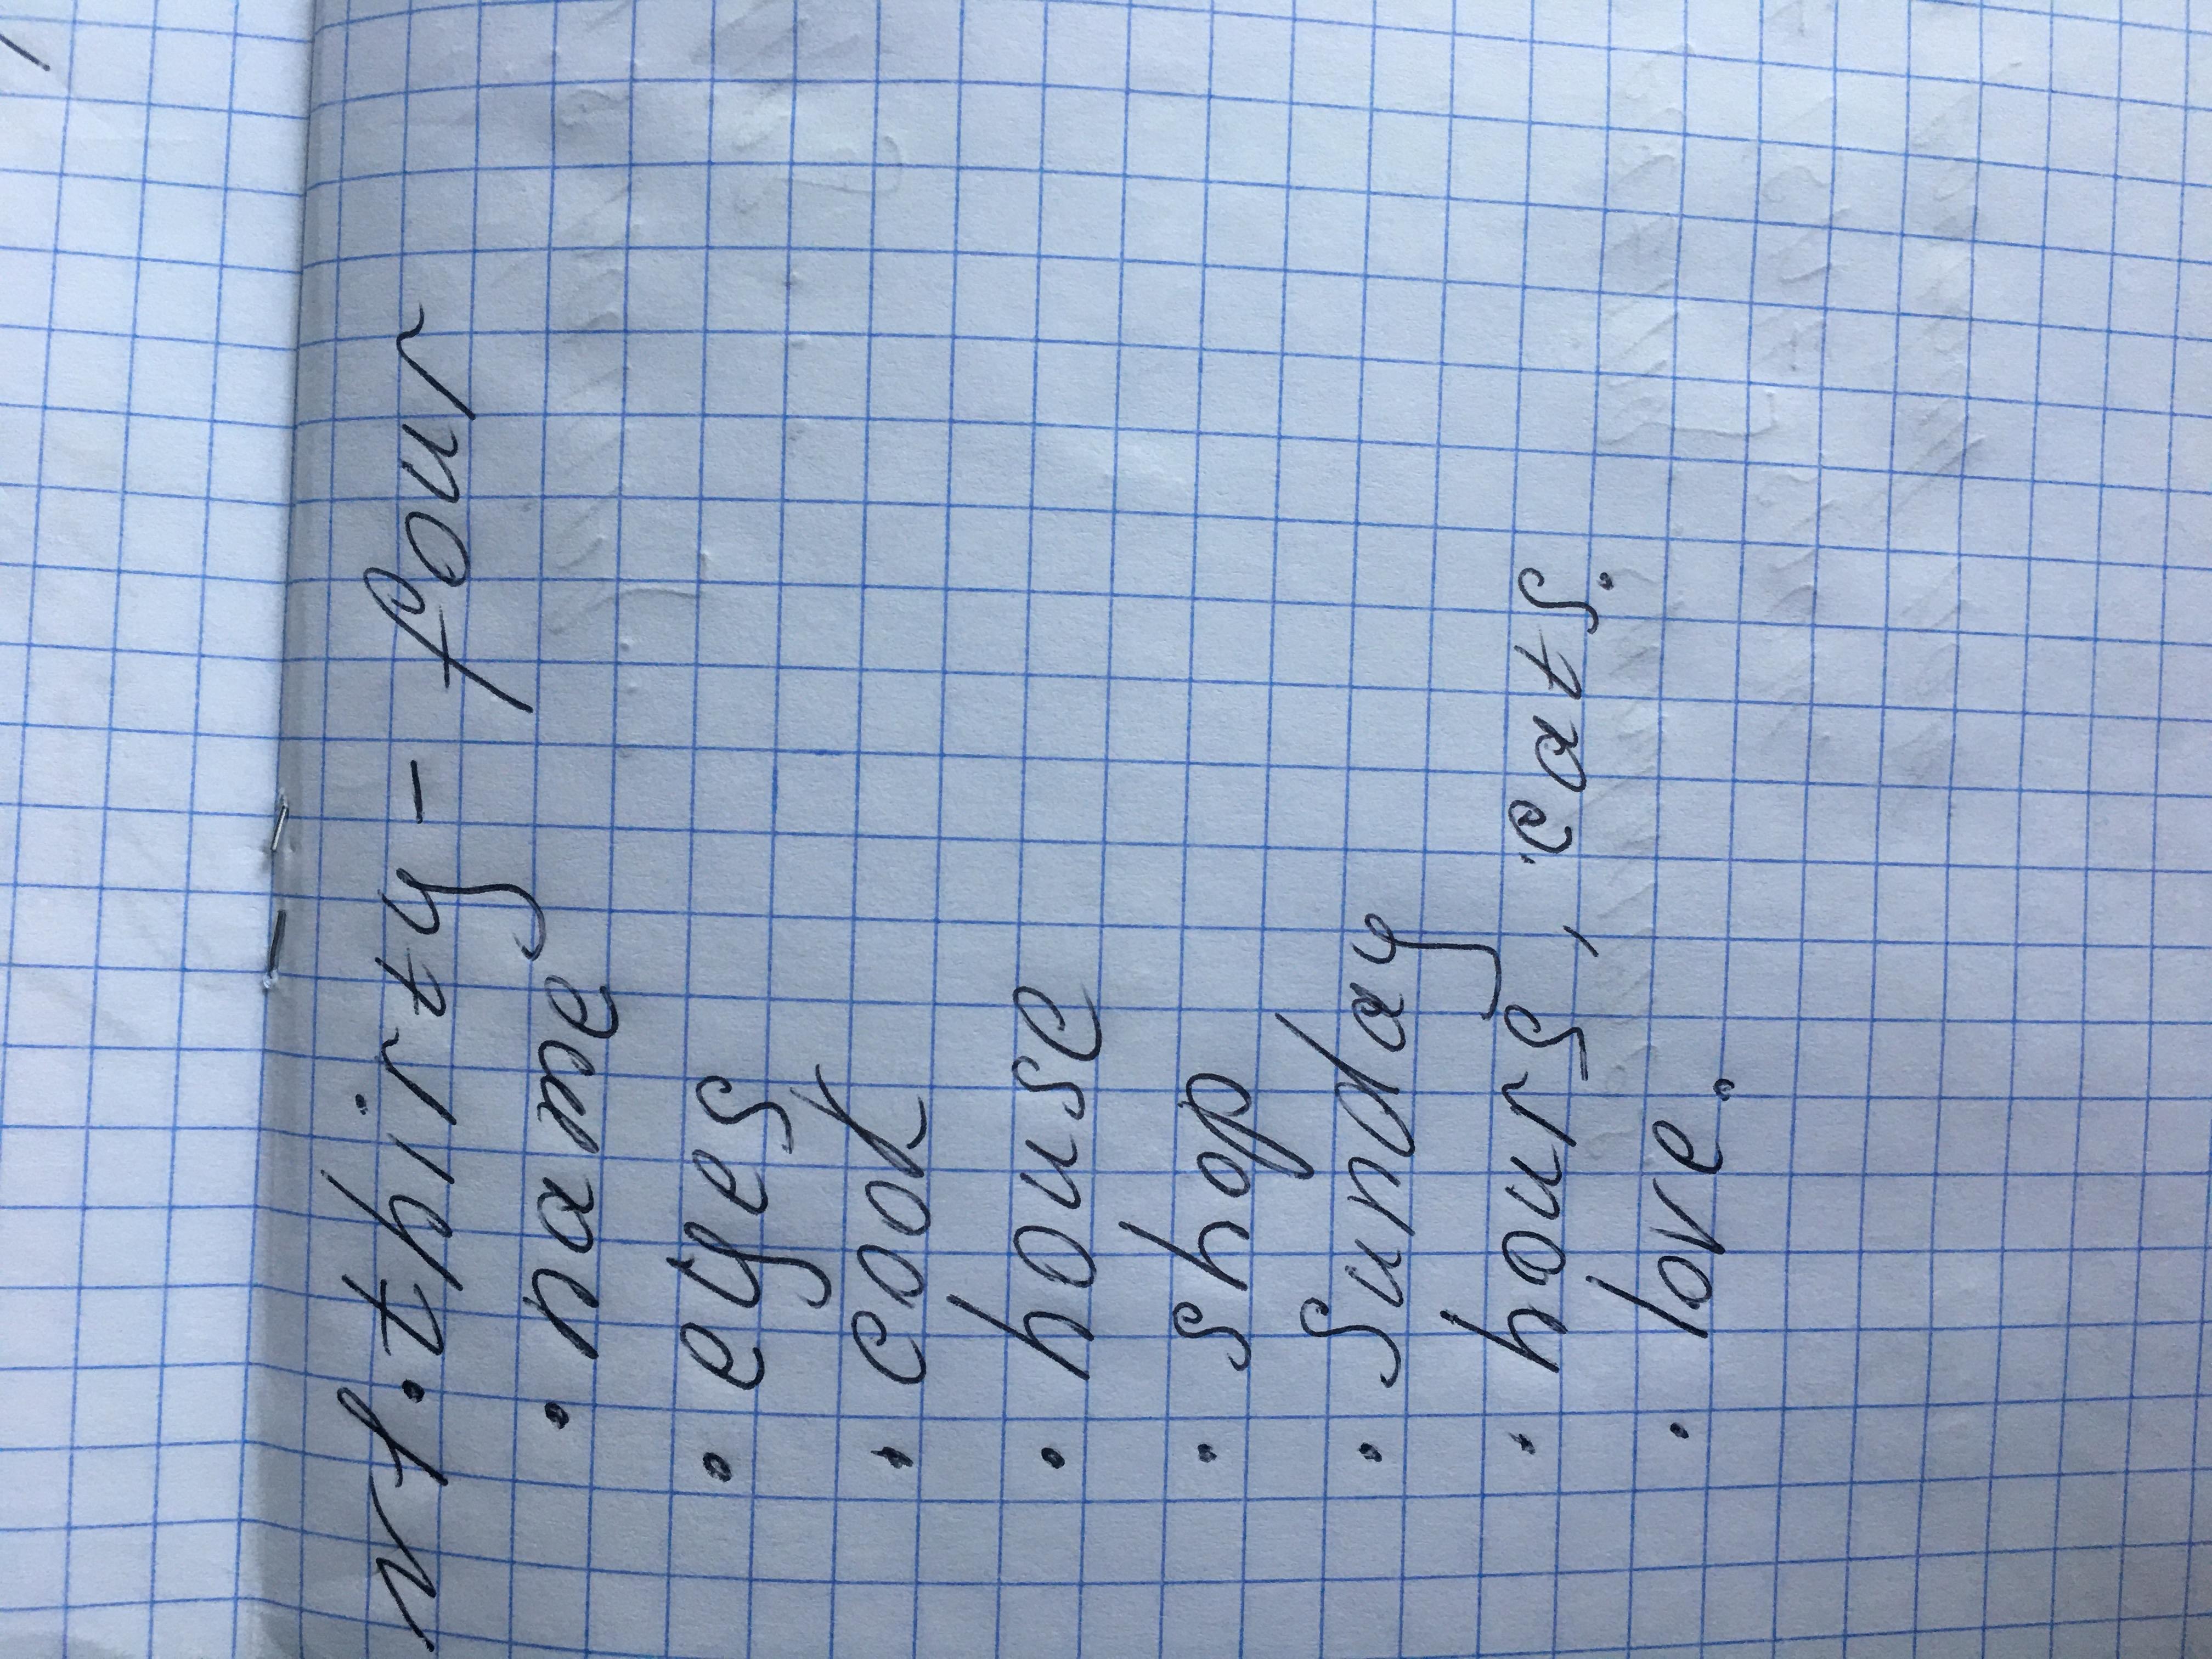 N1. thirty - four
. name
. eyes
. cook
. house
. shop
. Sunday
. hours, cats.
. love.